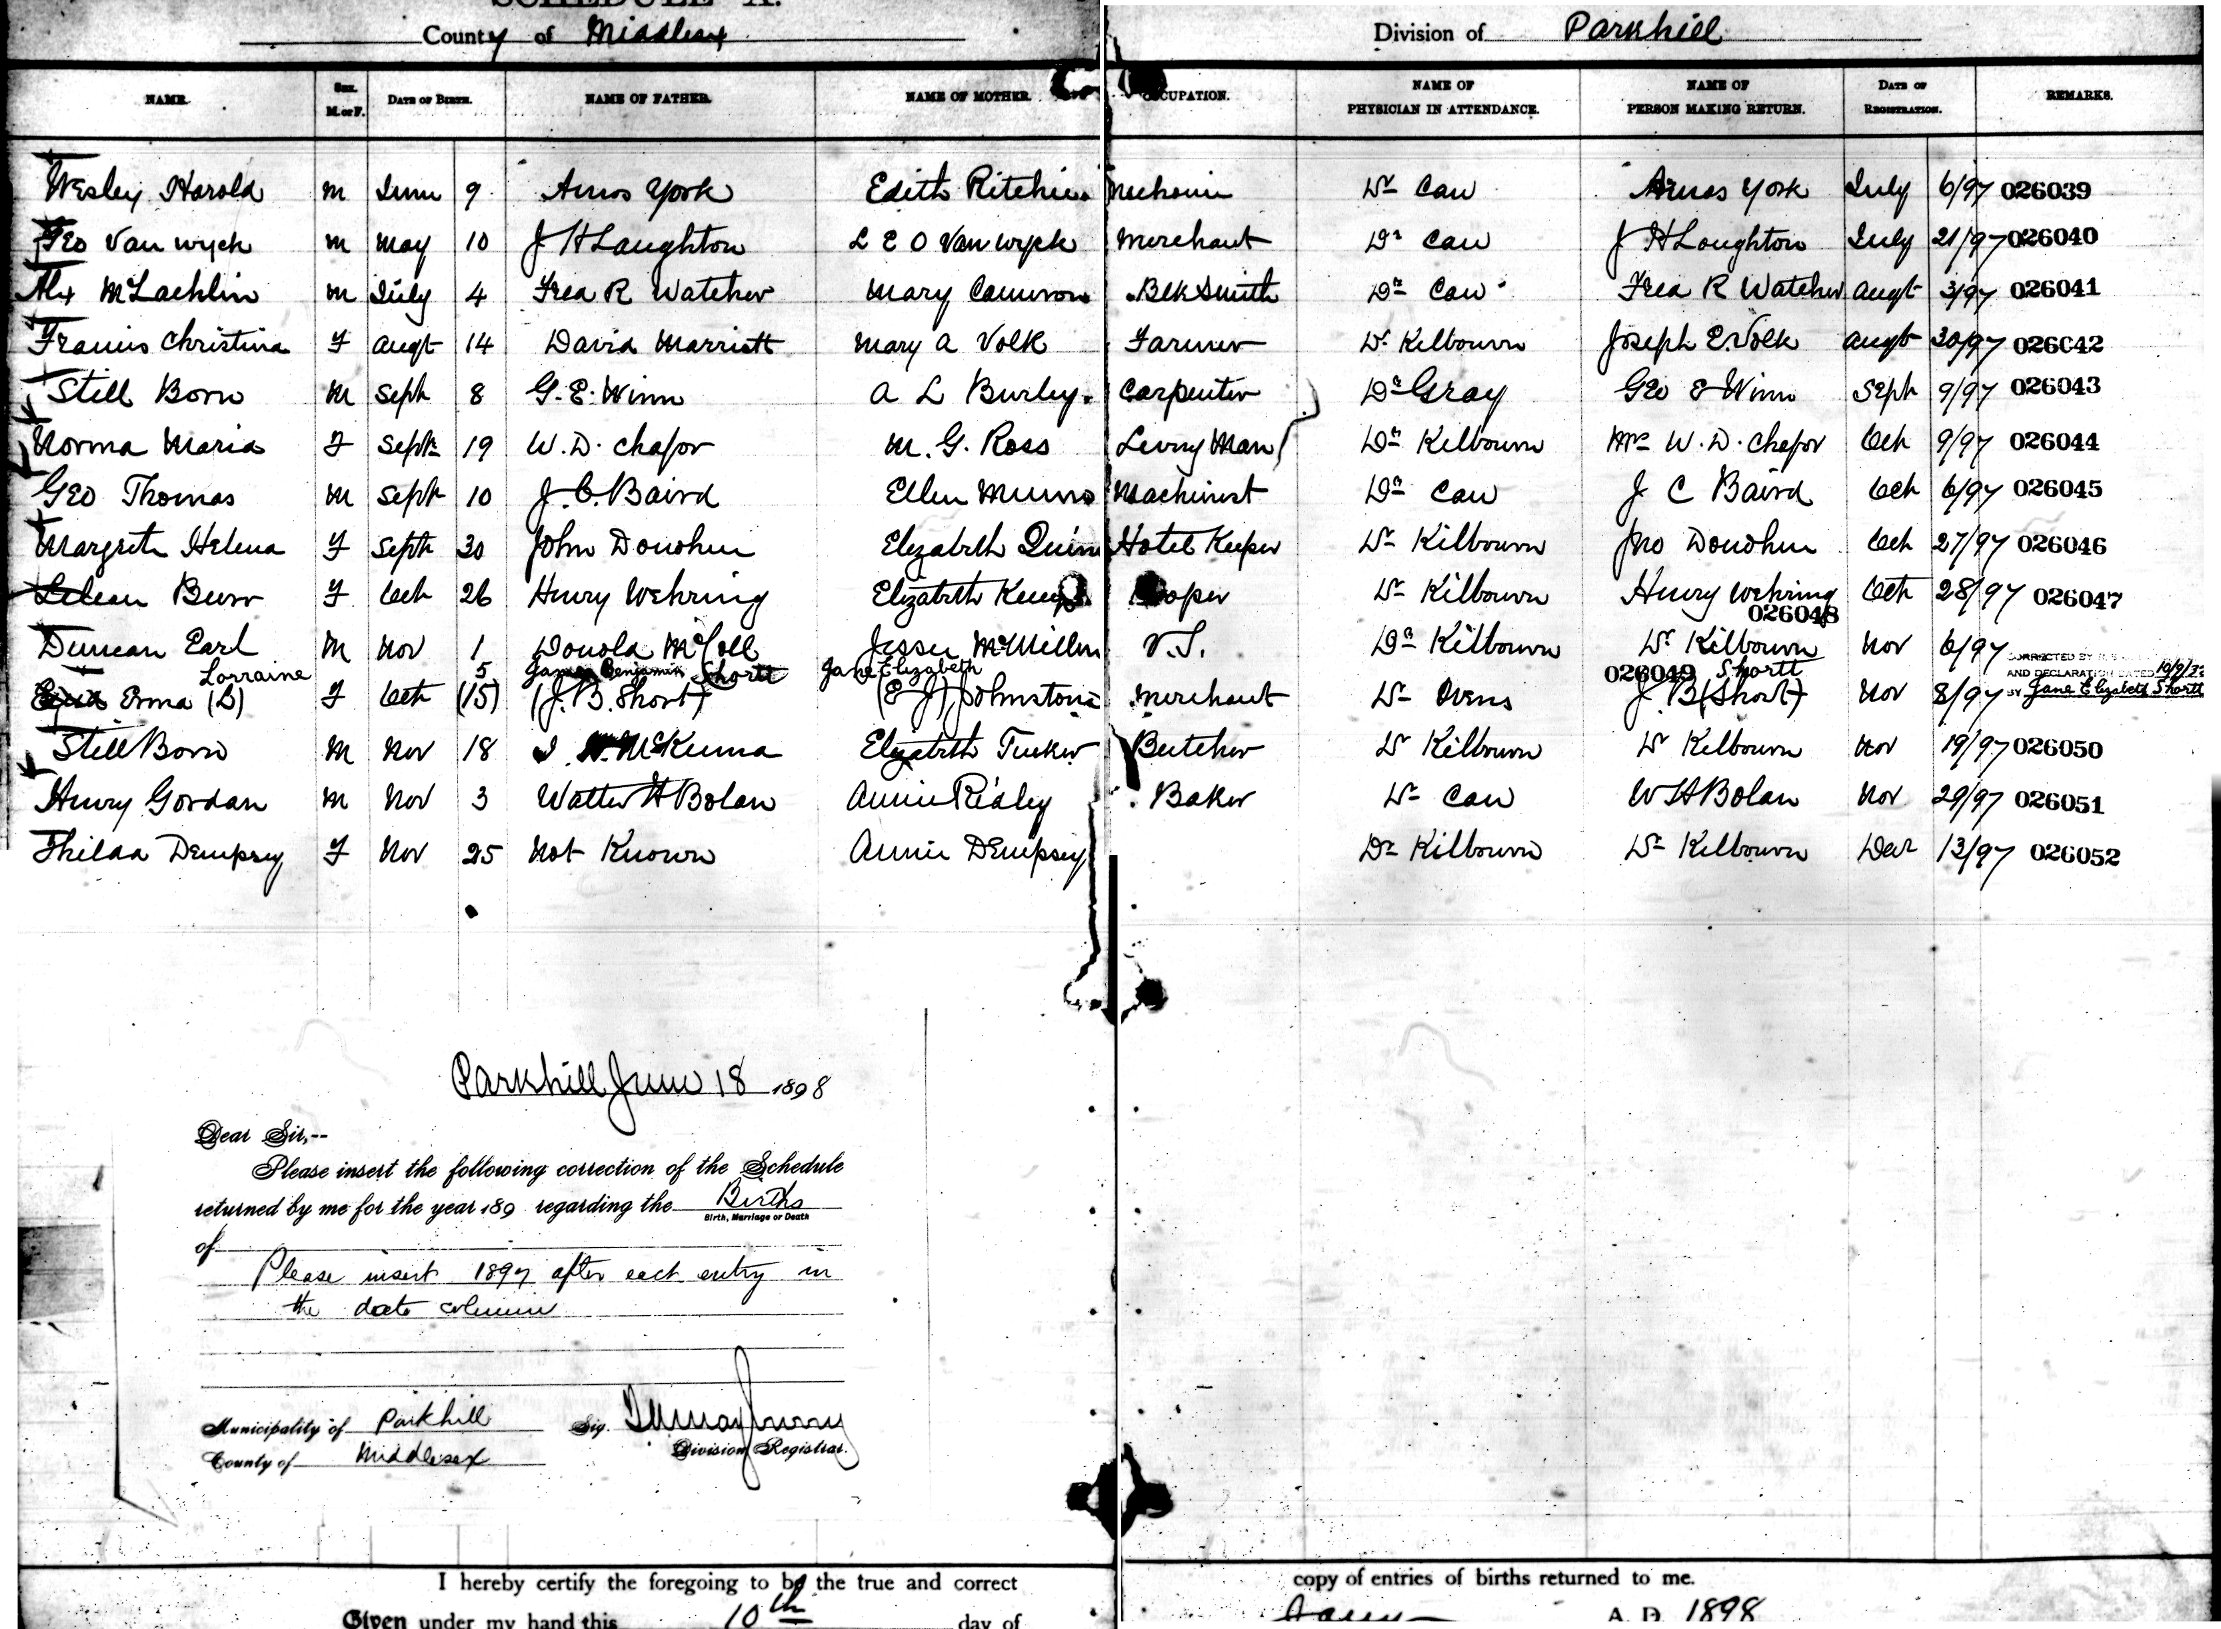 SCHEDULE A.
County of Middlesex Division of Parkhill
NAME. SEX. M. or F. DATE OF BIRTH. NAME OF FATHER. NAME OF MOTHER. OCCUPATION. NAME OF PHYSICIAN IN ATTENDANCE. NAME OF PERSON MAKING RETURN. DATE OF REGISTRATION. REMARKS.
Wesley Harold M June 9 Amos York Edith Ritchie Dr Caw Amos York July 6/97 026039
Geo Van wyck M May 10 J H Laughton L E O Van wyck Merchant Dr Caw J H Loughton July 21/97 026040
Alex McLachlin M July 4 Fred R Watcher Mary Cameron Blk Smith Dr Caw Fred R Watcher Augt 3/97 026041
Francis Christina F Augt 14 David Marriott Mary A Volk Farmer Dr Kilbourn Joseph E. Volk Augt 30/97 026042
Still Born M Sept 8 G. E. Winn A L Burley. Carpenter Dr Gray Geo E Winn Sept 9/97 026043
Norma Maria F Sept 19 W. D. Chafor M. G. Ross Livry Man Dr Kilbourn Mrs W. D. Chafor Oct 9/97 026044
Geo Thomas M Sept 10 J. C. Baird Ellen Munro Machinist Dr Caw J C Baird Oct 6/97 026045
Margrete Helena F Sept 30 John Donohue Elizabeth Quinn Hotel Keeper Dr Kilbourn Jno Donohue Oct 27/97 026046
Burr F Oct 26 Henry Wehring Elizabeth Cooper Dr Kilbourn Henry Wehring Oct 28/97 026047
026048
Duncan Earl M Nov 1 Donald McColl Jessie McMillan V.S. Dr Kilbourn Dr Kilbourn Nov 6/97
Lorraine 5 James Benjamin Shortt Jane Elizabeth 026049 Shortt CORRECTED BY
Erma (B) F Oct (15) (J. B. Short) (E J) Johnstone Merchant Dr Ovens J. B (Short) Nov 8/97 AND DECLARATION DATED BY Jane Elizabeth Shortt
Still Born M Nov 18 McKenna Elizabeth Tucker Butcher Dr Kilbourn Dr Kilbourn Nov 19/97 026050
Henry Gordan M Nov 3 Walter H Bolan Annie Ridley Baker Dr Caw W H Bolan Nov 29/97 026051
Thilda Dempsey F Nov 25 Not Known Annie Dempsey Dr Kilbourn Dr Kilbourn Dec 13/97 026052
Parkhill June 18 1898
Dear Sir,--
Please insert the following correction of the Schedule
returned by me for the year 189 regarding the Births
Birth, Marriage or Death
of
Please insert 1897 after each entry in
the date column
Municipality of Parkhill Sig.
County of Middlesex Division Registrar.
I hereby certify the foregoing to be the true and correct copy of entries of births returned to me.
Given under my hand this 10th day of A. D. 1898